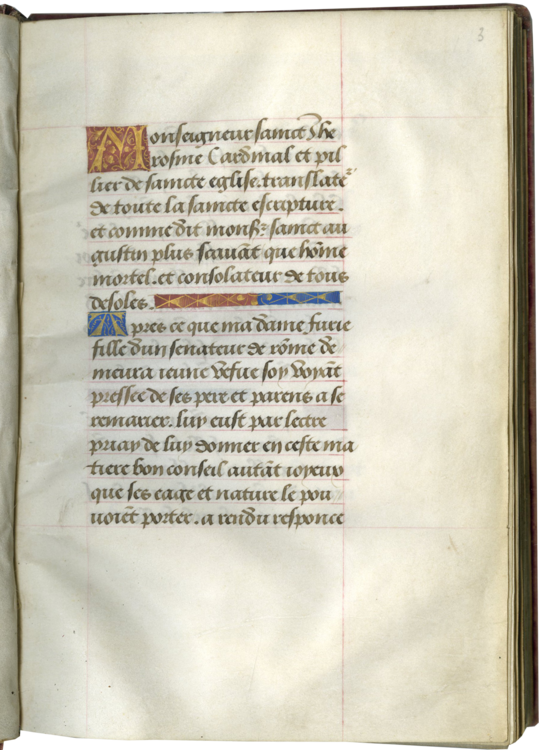 3
Monseigneur sainct Jhe
rosme Cardinal et pil
lier de saincte eglise. translateᵘ²
de toute la saincte escripture.
et comme dit monsʳ sainct au
gustin plus scauãt que hõme
mortel. et consolateur de tous
desoles.
Apres ce que ma dame furie
fille dun senateur de rõme de
meura ieune vefue soy voyãt
pressee de ses pere et parens a se
remarier. luy eust par lectre
priay de luy donner en ceste ma
tiere bon conseil autãt ioyeux
que ses eage et nature le pou
uoiẽt porter. a rendu responce